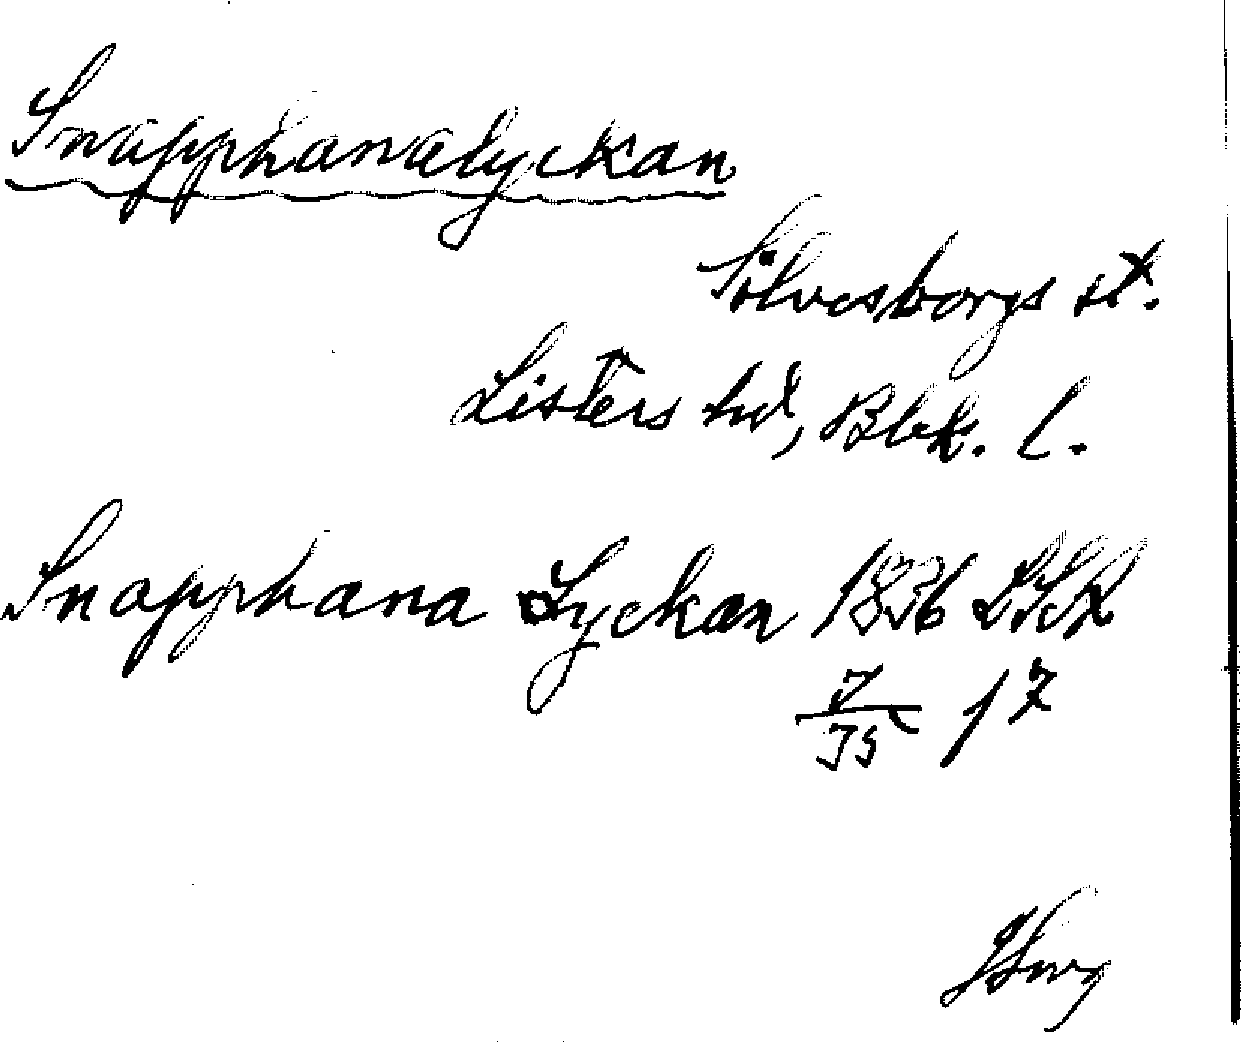 Snapphanalyckan
Sölvesborgs st.
Listers hd, Blek. l.
Snapphana Lyckan 1836 LSA